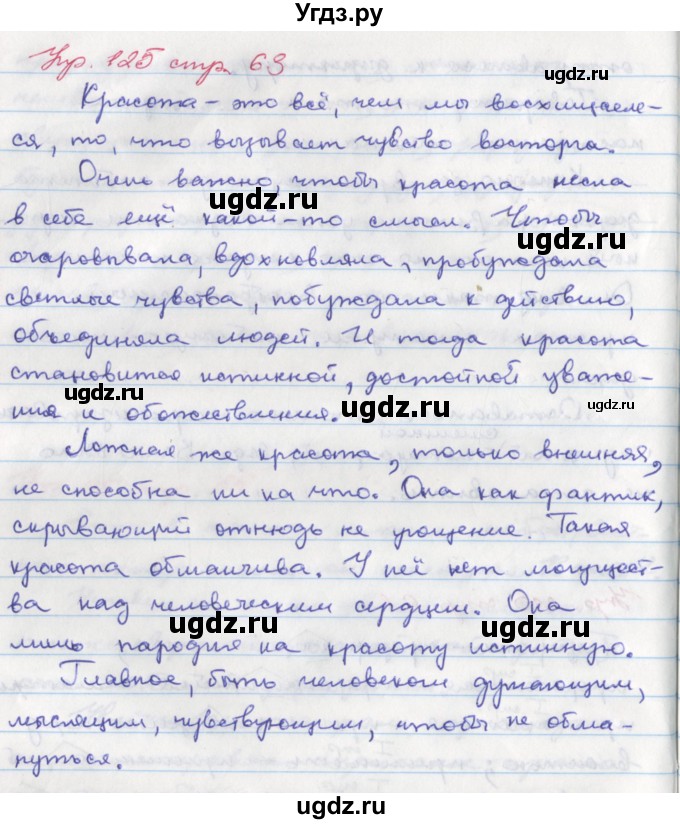 Угдз.ру
Упр. 125 стр. 63
Красота – это всё, чем мы восхищаем-
ся, то, что вызывает чувство восторга.
Очень важно, чтобы красота несла
в себе ещё какой-то смысл. Чтобы
очаровывала, вдохновляла, пробуждала
светлые чувства, побуждала к действию,
объединяла людей. И тогда красота
становится истинной, достойной уваже-
ния и обожествления.
Ложная же красота, только внешняя,
не способна ни на что. Она как фантик,
скрывающий отнюдь не угощение. Такая
красота обманчива. У неё нет могущест-
ва над человеческим сердцем. Она
лишь пародия на красоту истинную.
Главное, быть человеком думающим,
мыслящим, чувствующим, чтобы не обма-
нуться.
ugdz.ru
ugdz.ru
ugdz.ru
ugdz.ru
ugdz.ru
ugdz.ru
ugdz.ru
ugdz.ru
ugdz.ru
ugdz.ru